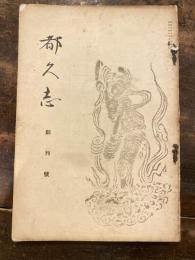 都久志
創刊號